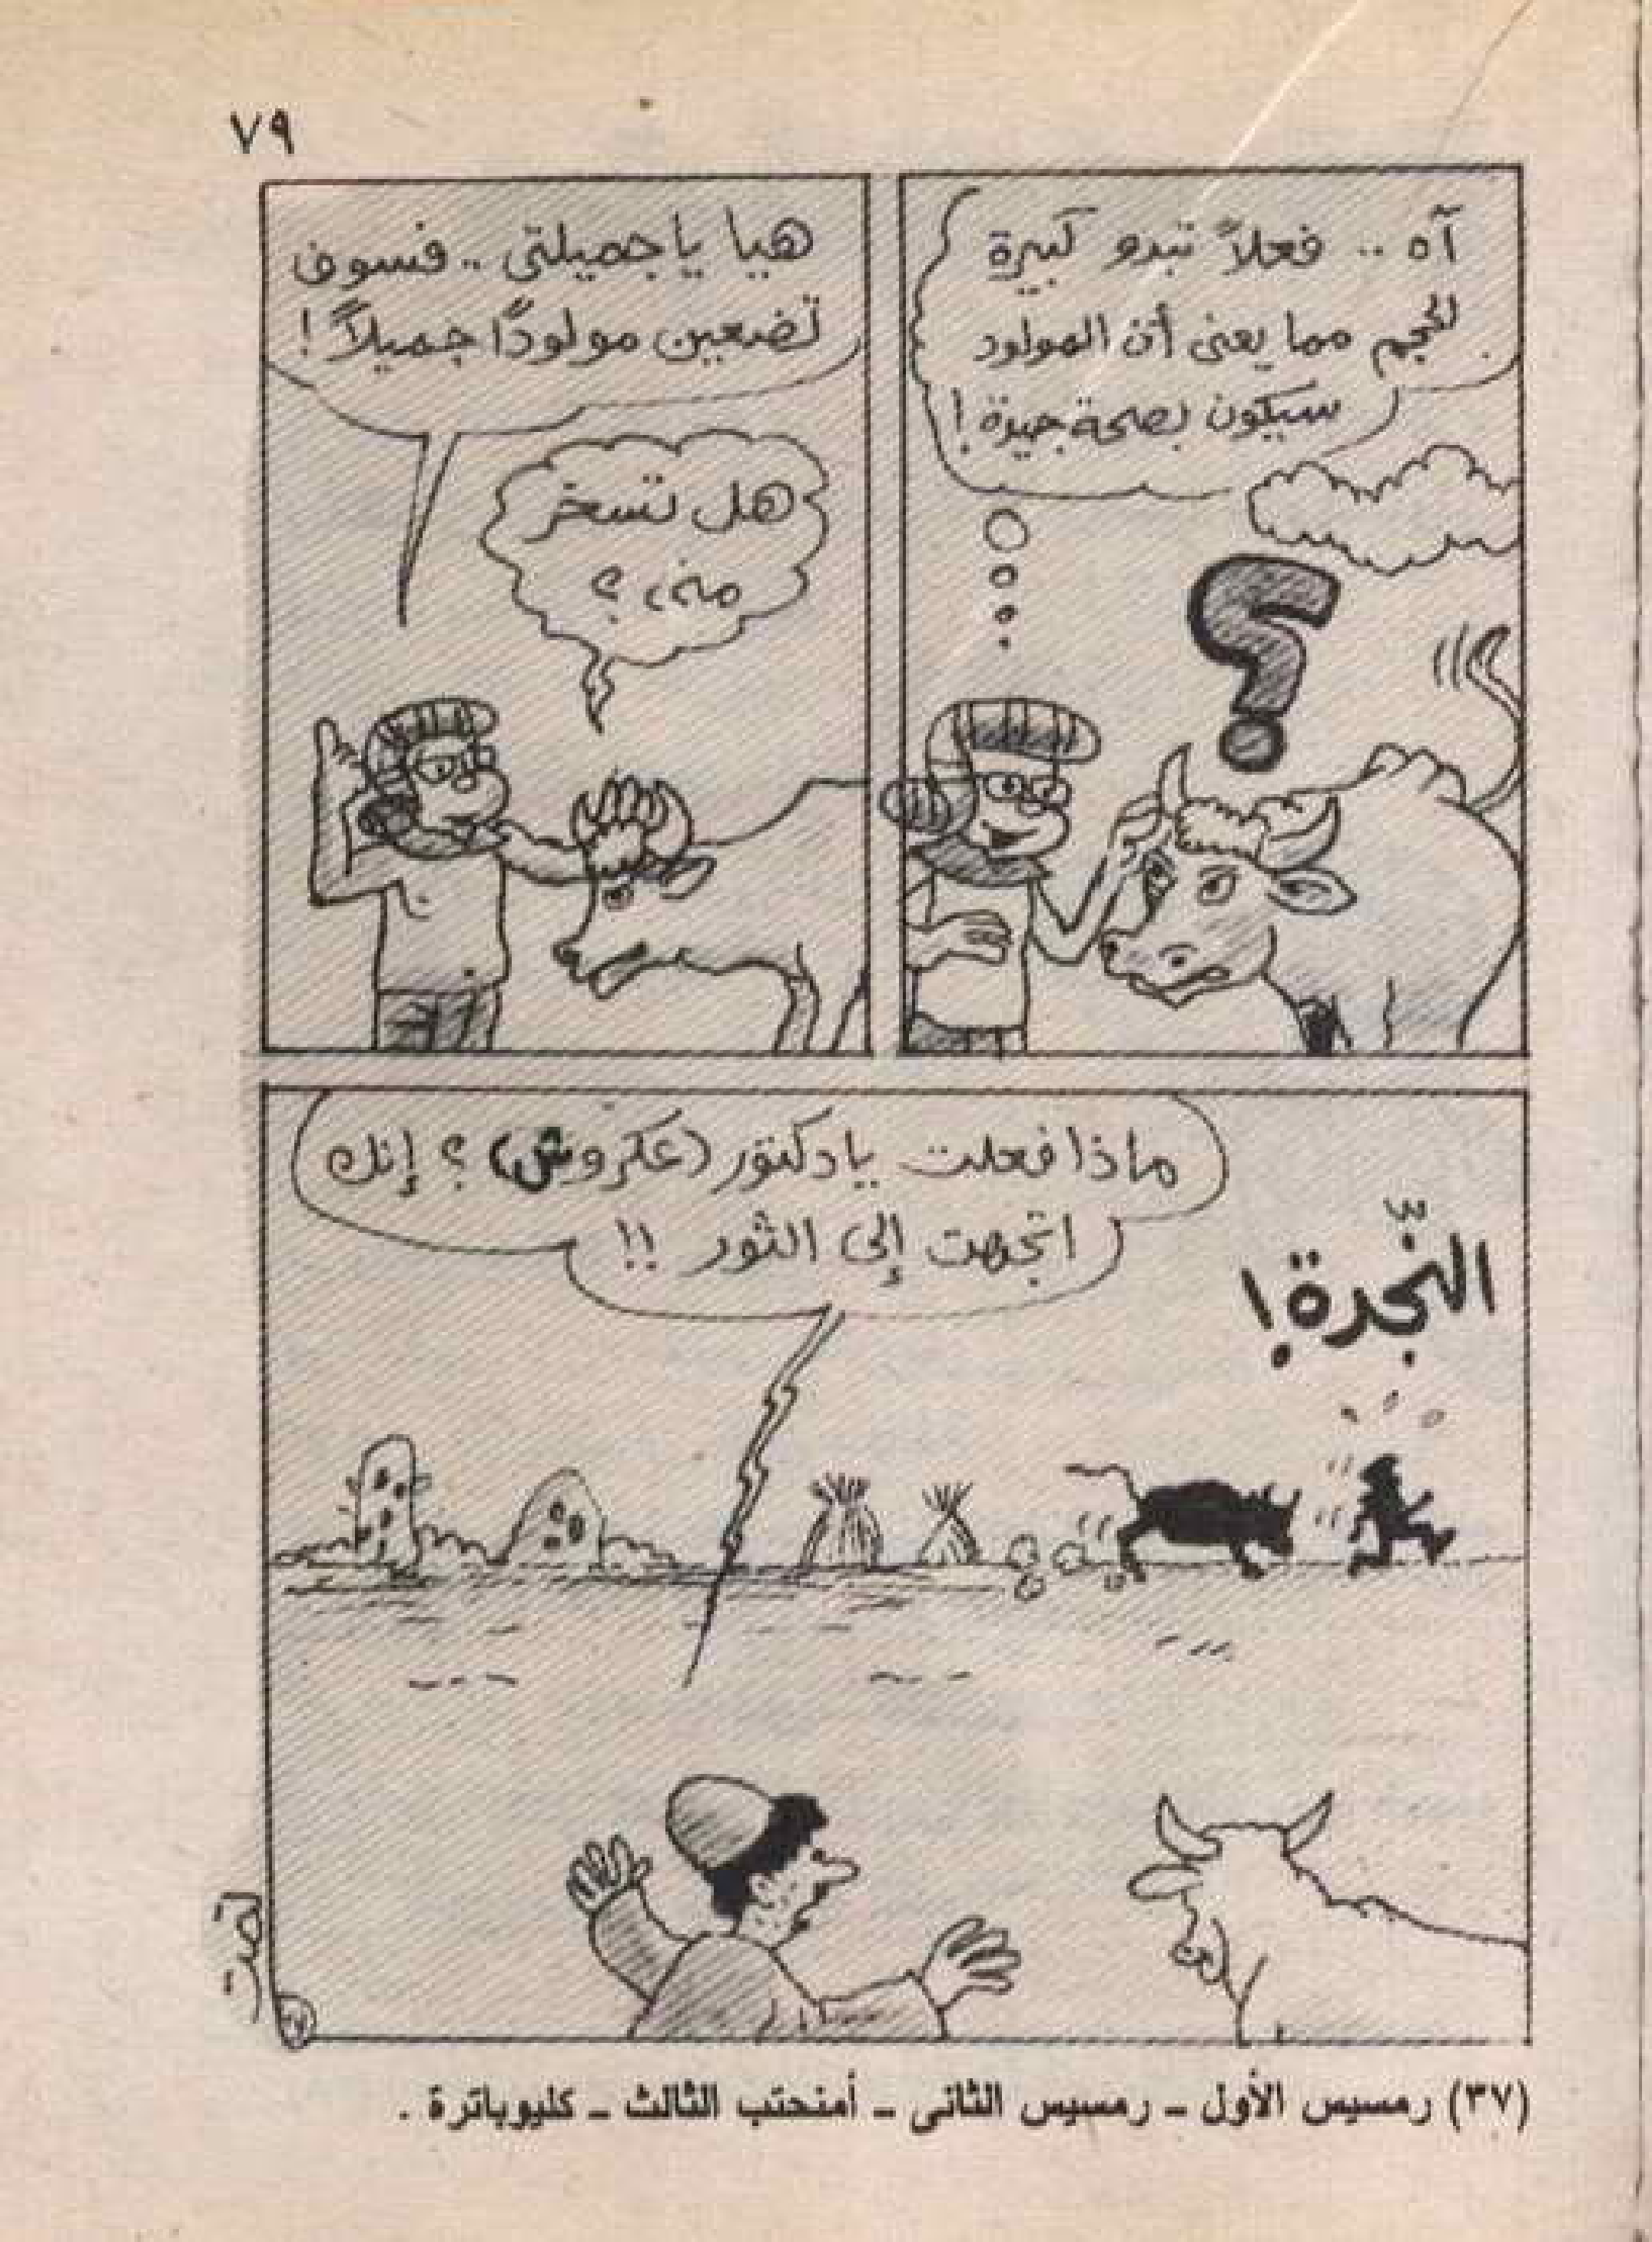 ٧٩
آه .. فعلاً تبدو كبيرة
الحجم مما يعنى أن المولود
سيكون بصحة جيدة !
هيا يا جميلتى .. فسوف
تضعين مولودًا جميلاً !
هل تسخر
منى ؟
ماذا فعلت يا دكتور (عكروش) ؟ إنك
اتجهت إلى الثور !!
النّجدة !
(٣٧) رمسيس الأول ـ رمسيس الثانى ـ أمنحتب الثالث ـ كليوباترة .